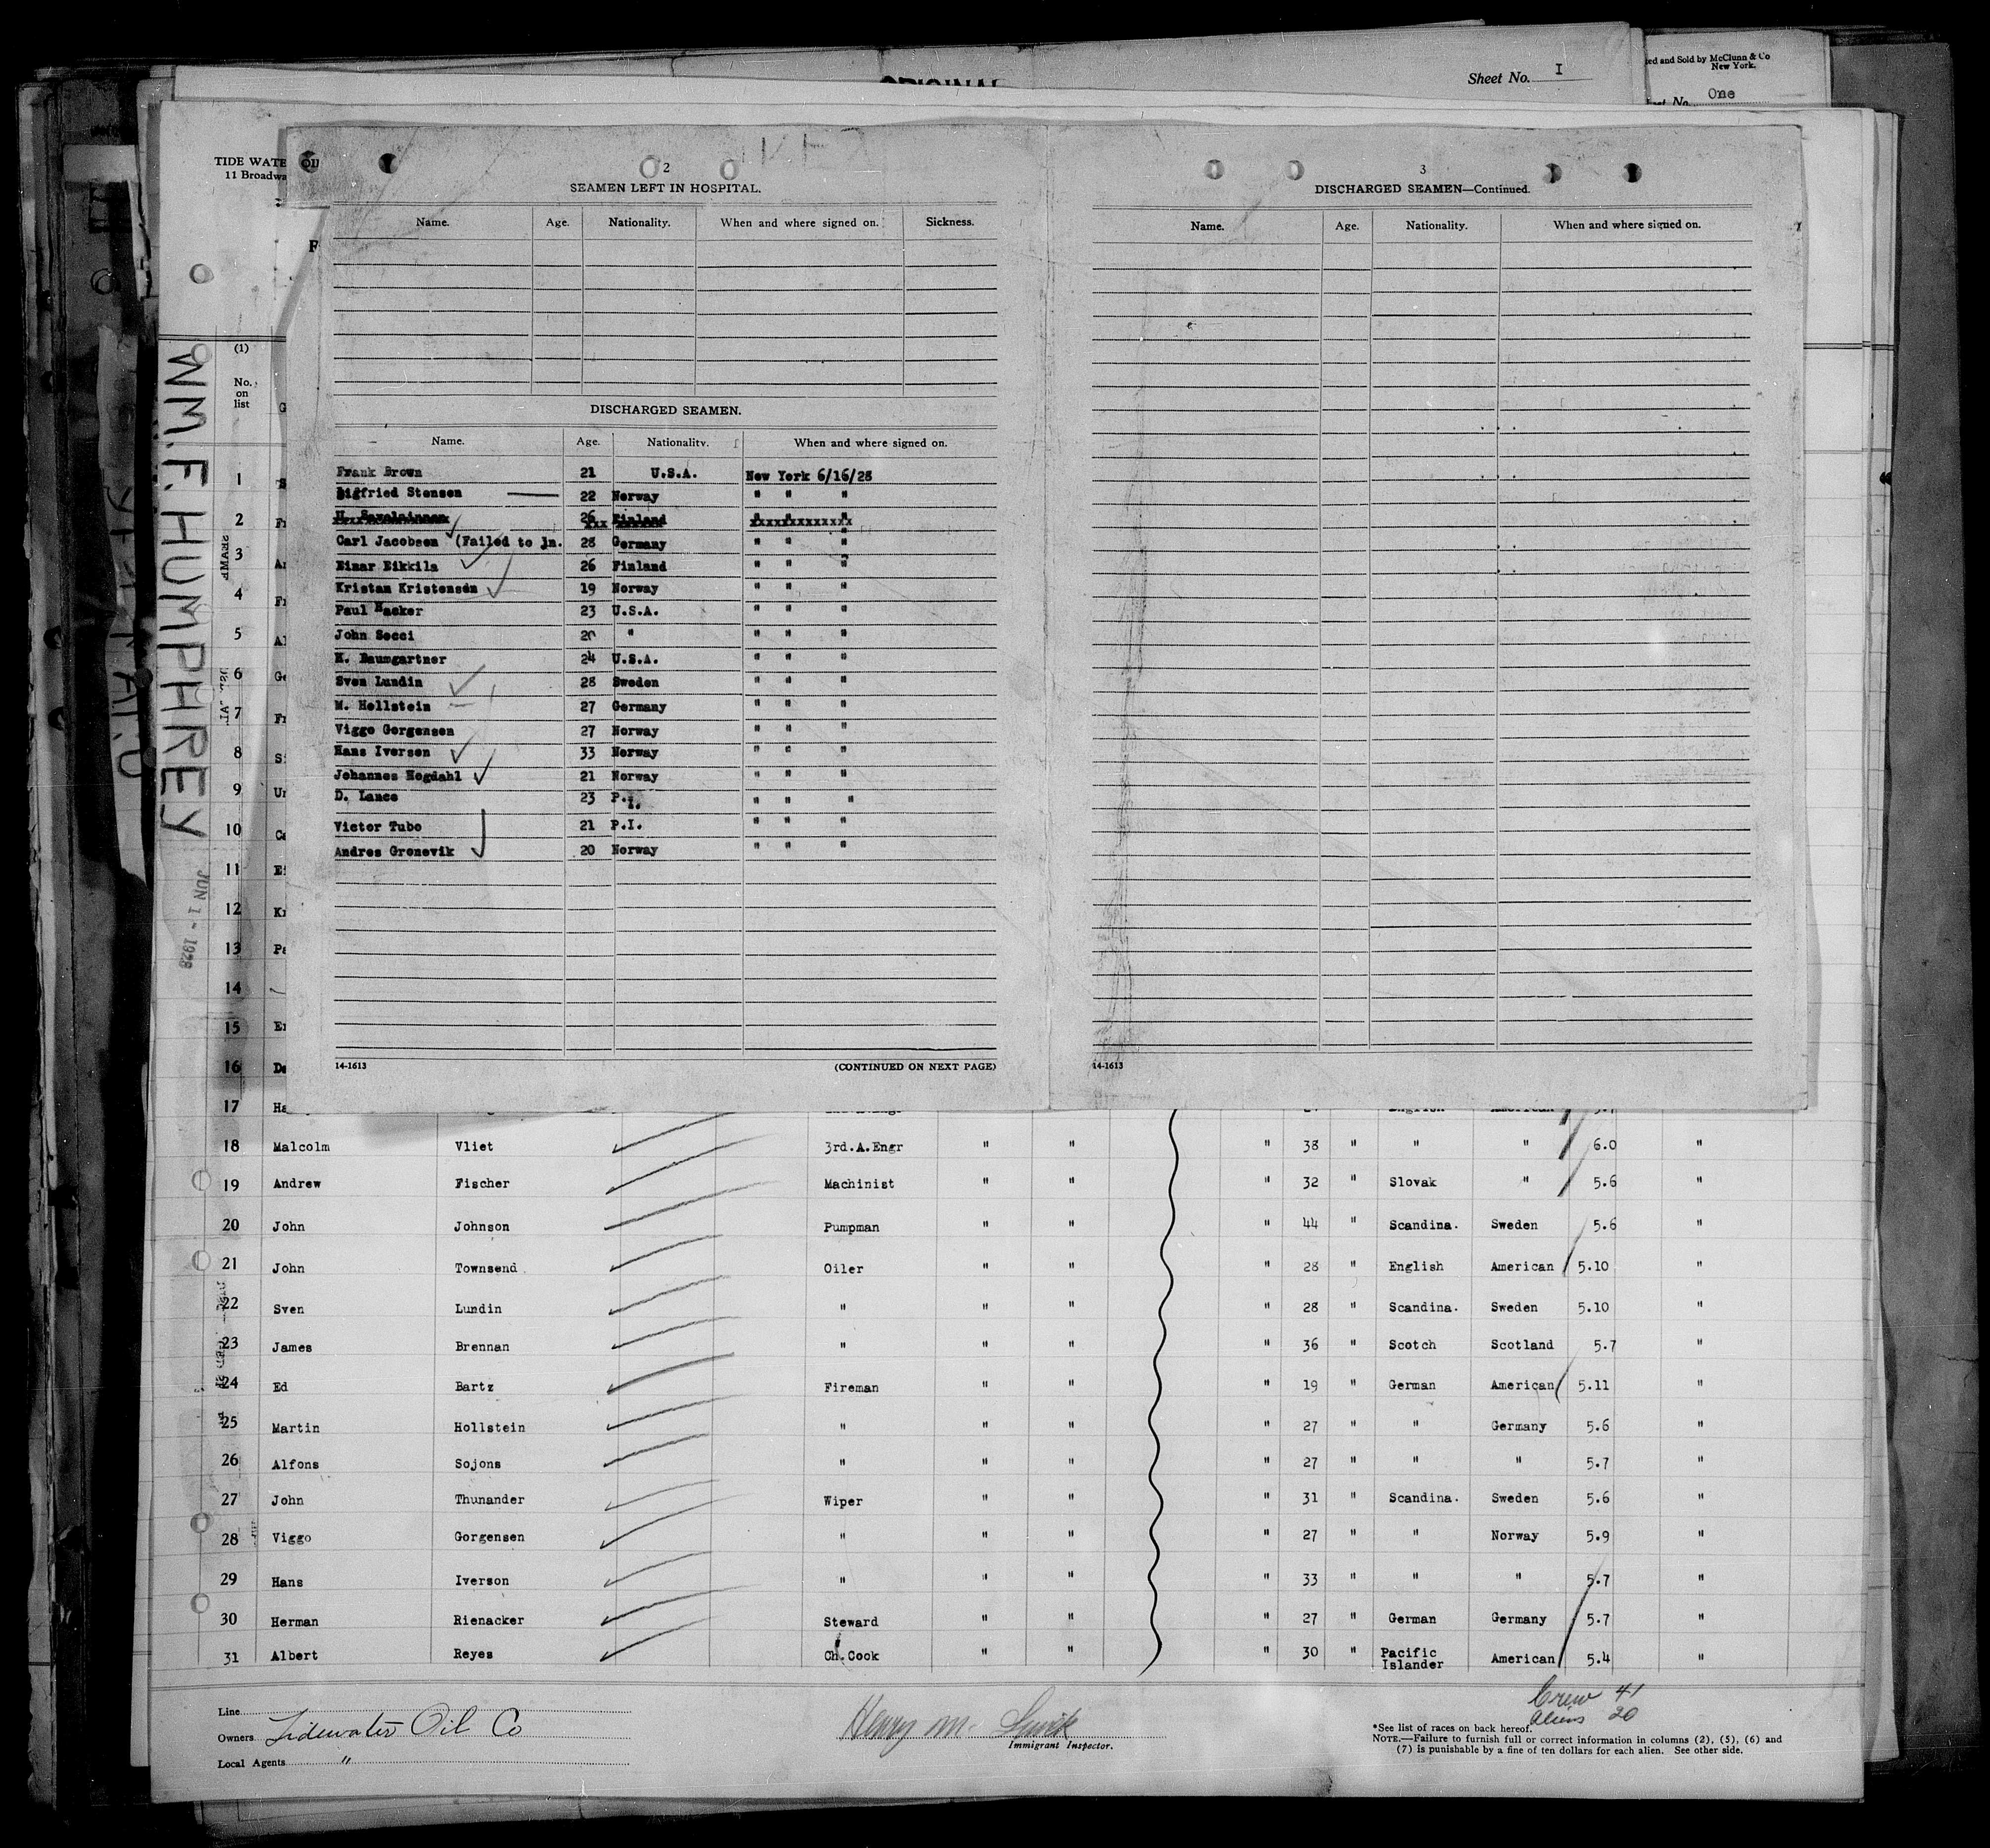 ORIGINAL
Sheet No. I
ed and Sold by McClunn & Co
New York.
No. One
TIDE WATE OIL
11 Broadwa
2
SEAMEN LEFT IN HOSPITAL.
Name. Age. Nationality. When and where signed on. Sickness.
DISCHARGED SEAMEN.
Name. Age. Nationality. When and where signed on.
Frank Brown 21 U.S.A. New York 6/16/28
Sigfried Stensen 22 Norway " " "
H. Savolainnen 26 Finland " " "
Carl Jacobsen (Failed to jn. 28 Germany " " "
Einar Eikkila 26 Finland " " "
Kristan Kristensen 19 Norway " " "
Paul Hacker 23 U.S.A. " " "
John Secci 20 " " " "
K. Baumgartner 24 U.S.A. " " "
Sven Lundin 28 Sweden " " "
M. Hollstein 27 Germany " " "
Viggo Gorgensen 27 Norway " " "
Hans Iversen 33 Norway " " "
Johannes Hogdahl 21 Norway " " "
D. Lance 23 P.I. " " "
Victor Tubo 21 P.I. " " "
Andres Gronevik 20 Norway " " "
14-1613 (CONTINUED ON NEXT PAGE)
3
DISCHARGED SEAMEN—Continued.
Name. Age. Nationality. When and where signed on.
14-1613
WM. F. HUMPHREY
JUN 1 - 1928
(1)
No. on list
1 S
2 Fr
3 An
4 Fr
5 Al
6 Ge
7 Fr
8 Si
9 Un
10 Ca
11 Ei
12 Kr
13 Pa
14
15 Er
16 De
17 Ha English American 5.7
18 Malcolm Vliet 3rd.A.Engr " " " 38 " " " 6.0 "
19 Andrew Fischer Machinist " " " 32 " Slovak " 5.6 "
20 John Johnson Pumpman " " " 44 " Scandina. Sweden 5.6 "
21 John Townsend Oiler " " " 28 " English American 5.10 "
22 Sven Lundin " " " " 28 " Scandina. Sweden 5.10 "
23 James Brennan " " " " 36 " Scotch Scotland 5.7 "
24 Ed Bartz Fireman " " " 19 " German American 5.11 "
25 Martin Hollstein " " " " 27 " " Germany 5.6 "
26 Alfons Sojons " " " " 27 " " " 5.7 "
27 John Thunander Wiper " " " 31 " Scandina. Sweden 5.6 "
28 Viggo Gorgensen " " " " 27 " " Norway 5.9 "
29 Hans Iverson " " " " 33 " " " 5.7 "
30 Herman Rienacker Steward " " " 27 " German Germany 5.7 "
31 Albert Reyes Ch.Cook " " " 30 " Pacific Islander American 5.4 "
Crew 41
Aliens 20
Line
Owners Tidewater Oil Co
Local Agents "
Henry M.
Immigrant Inspector.
*See list of races on back hereof.
NOTE.—Failure to furnish full or correct information in columns (2), (5), (6) and
(7) is punishable by a fine of ten dollars for each alien. See other side.